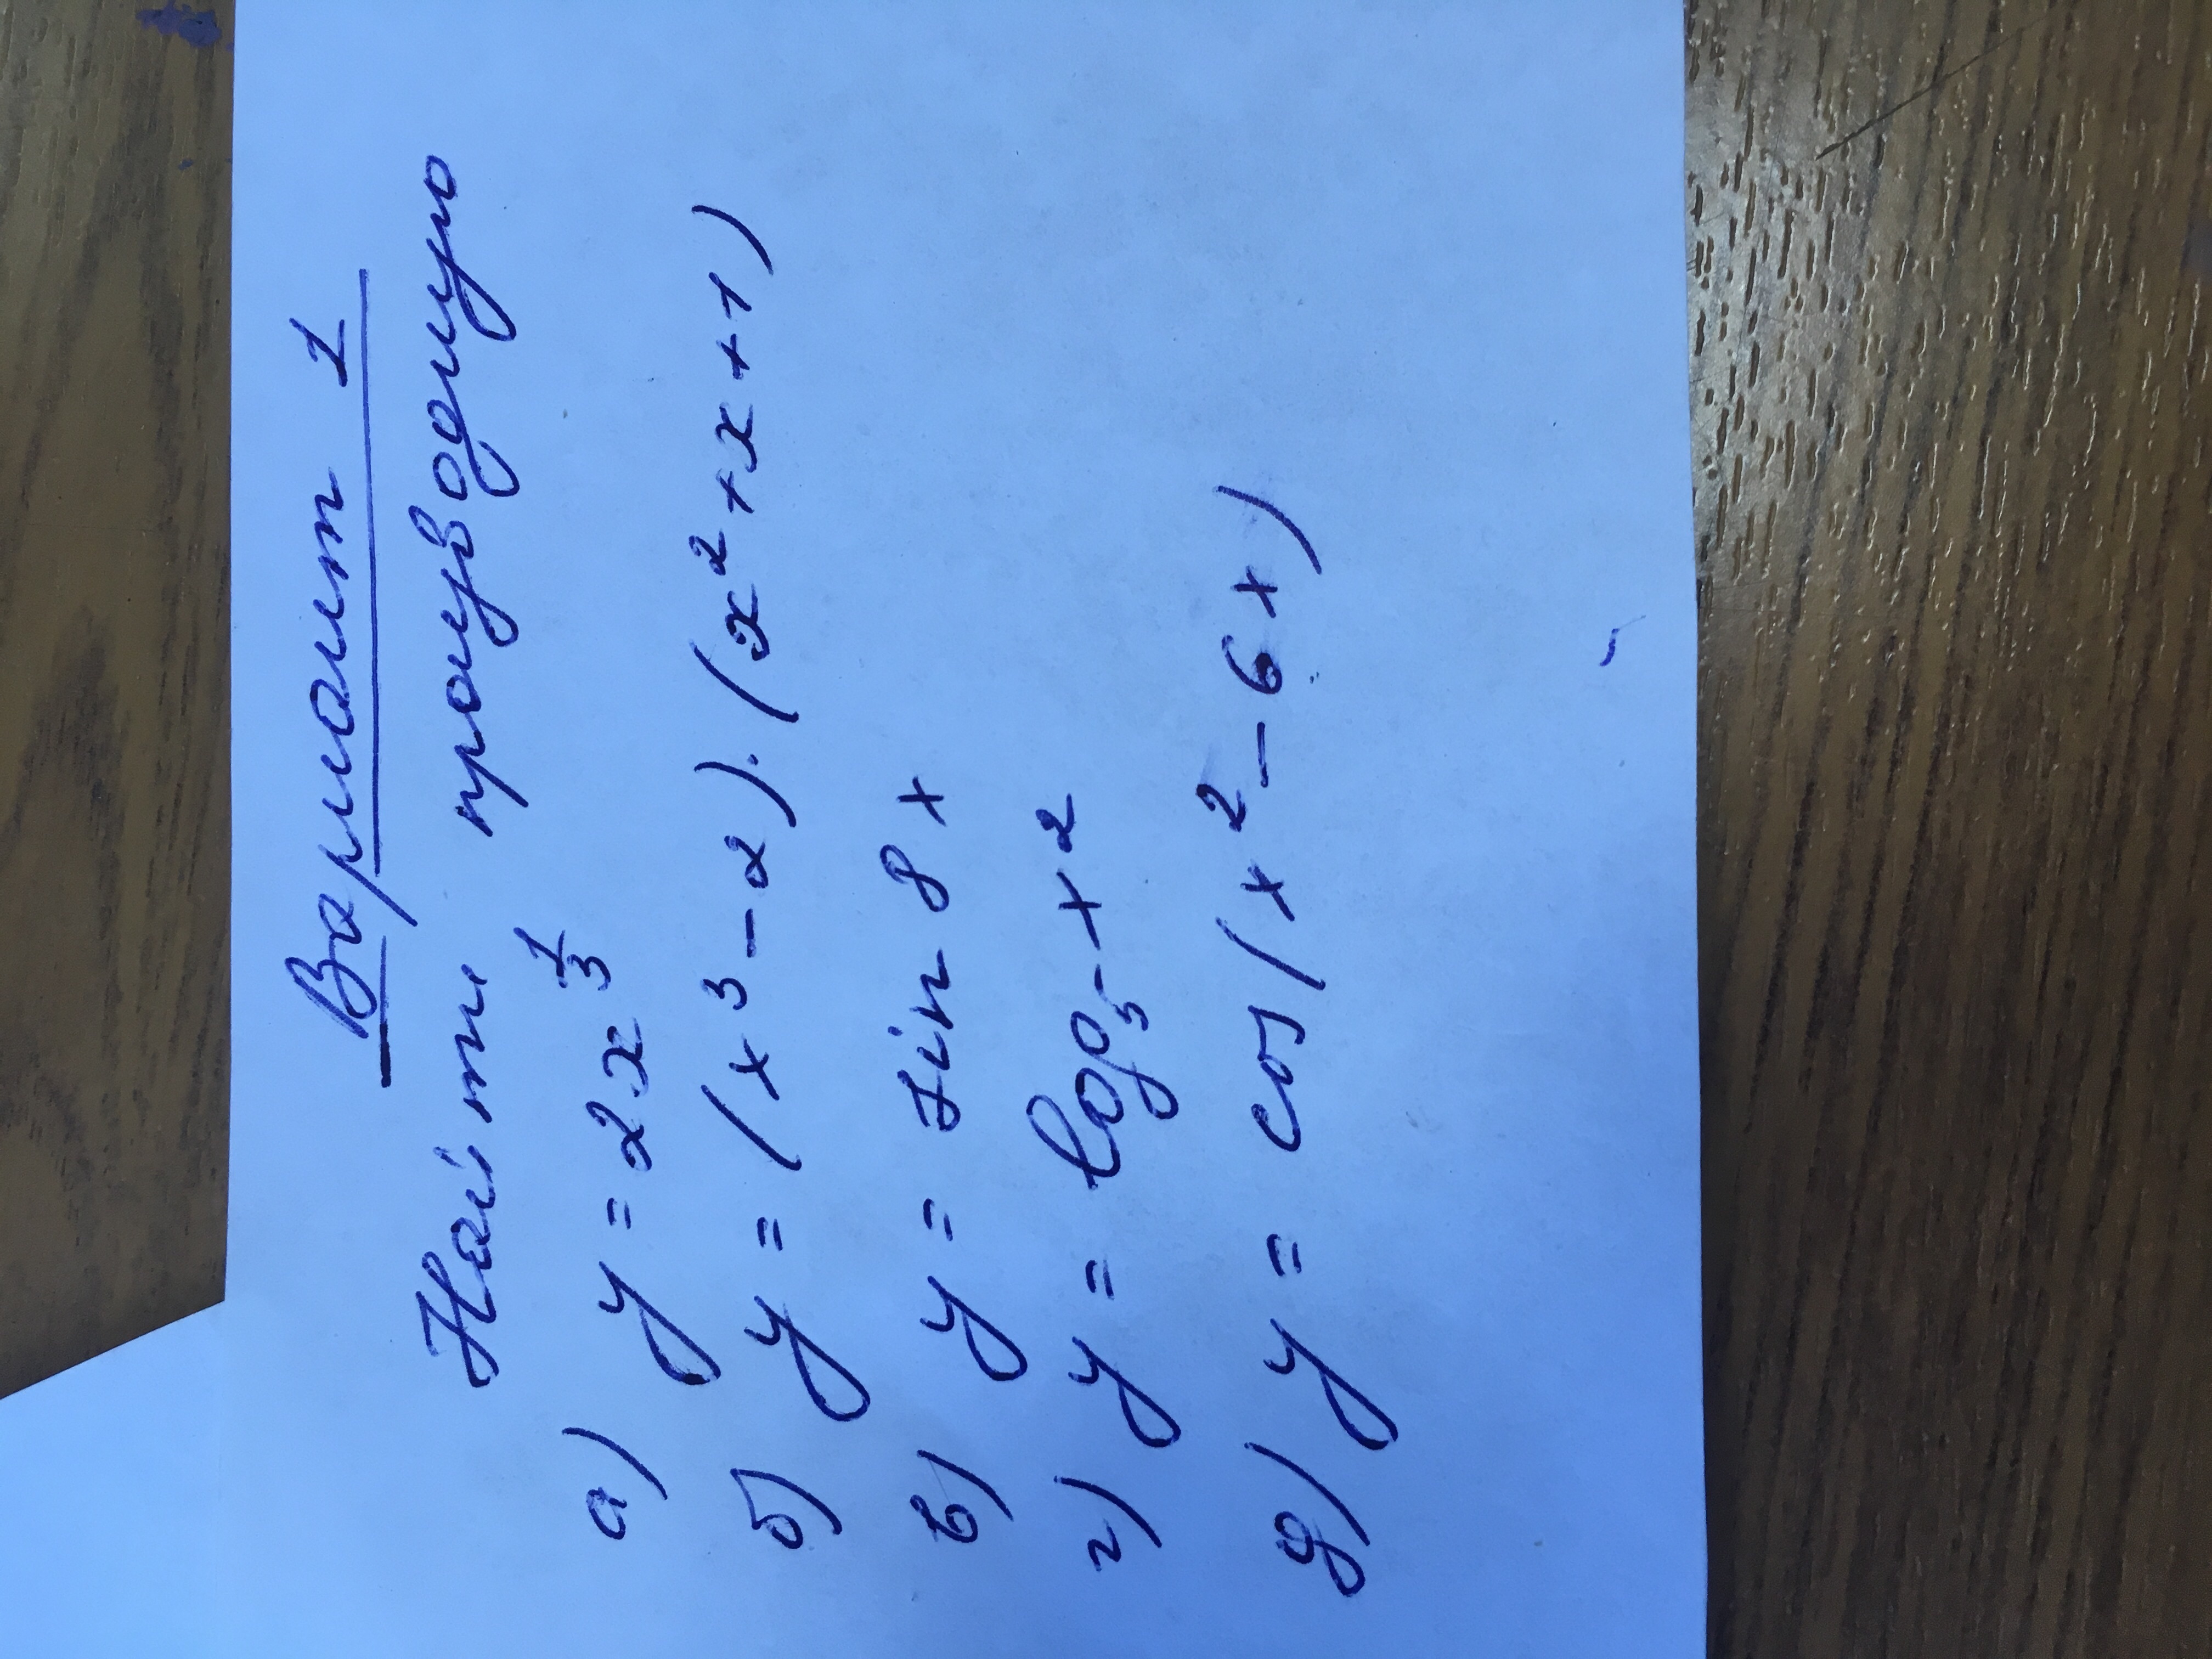 Вариант 1
Найти производную
а) y = 2x^{1/3}
б) y = (x³ - 2)·(x² + x + 1)
в) y = sin 8x
г) y = log₅ x²
д) y = cos(x² - 6x)